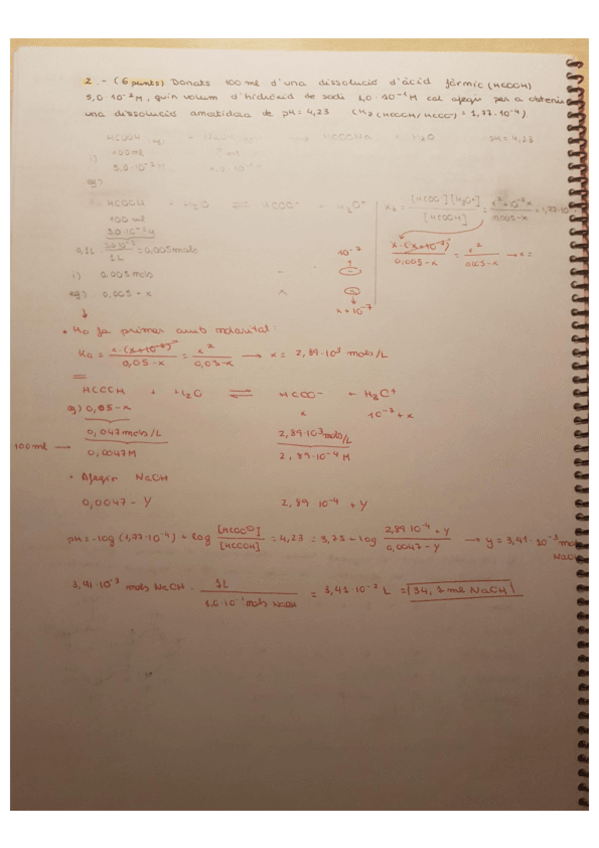 2.- (6 punts) Donats 100 ml d'una dissolució d'àcid fòrmic (HCOOH)
5,0·10⁻²M, quin volum d'hidròxid de sodi 1,0·10⁻¹M cal afegir per a obtenir
una dissolució amortidora de pH= 4,23 (Ka (HCOOH/HCOO⁻) = 1,77·10⁻⁴).
HCOOH + NaOH → HCOONa + H₂O pH= 4,23
i) 100ml
5,0·10⁻²M
eq)
HCOOH + H₂O ⇌ HCOO⁻ + H₃O⁺ Ka = [HCOO⁻][H₃O⁺] / [HCOOH] =
100 ml
5,0·10⁻²M
0,1L · 5,0·10⁻² / 1L = 0,005 mols
x·(x+10⁻⁷) / 0,005-x = x² / 0,005-x → x=
10⁻⁷
i) 0,005 mols - -
eq) 0,005-x x
x+10⁻⁷
• Ho fa primer amb molaritat:
Ka = x·(x+10⁻⁷) / 0,05-x = x² / 0,05-x → x= 2,89·10³ mols/L
HCOOH + H₂O ⇌ HCOO⁻ + H₃O⁺
eq) 0,05-x x 10⁻⁷+x
0,047 mols/L 2,89·10³ mols/L
100ml → 0,0047M 2,89·10⁻⁴ M
• Afegir NaOH
0,0047 - y 2,89·10⁻⁴ + y
pH = -log (1,77·10⁻⁴) + log [HCOO⁻] / [HCOOH] = 4,23 = 3,75 + log 2,89·10⁻⁴ + y / 0,0047-y → y= 3,41·10⁻³ mols
NaOH
3,41·10⁻³ mols NaOH · 1L / 1,0·10⁻¹ mols NaOH = 3,41·10⁻² L = 34,1 ml NaOH